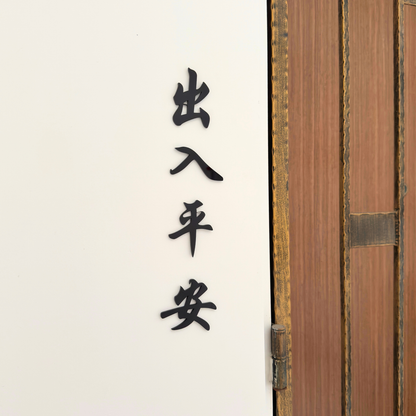 出入平安